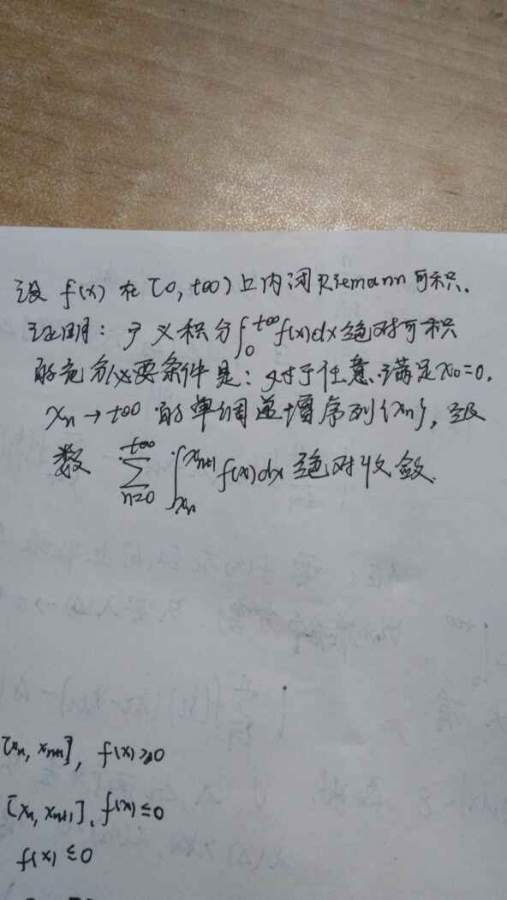 设 f(x) 在 [0, +∞) 上内闭 Riemann 可积.
证明: 广义积分 ∫₀^{+∞} f(x)dx 绝对可积
的充分必要条件是: 对于任意满足 x₀=0,
xₙ → +∞ 的单调递增序列 {xₙ}, 级
数 ∑_{n=0}^{+∞} ∫_{xₙ}^{xₙ₊₁} f(x)dx 绝对收敛.
[xₙ, xₙ₊₁], f(x)≥0
[xₙ, xₙ₊₁], f(x)≤0
f(x)≤0